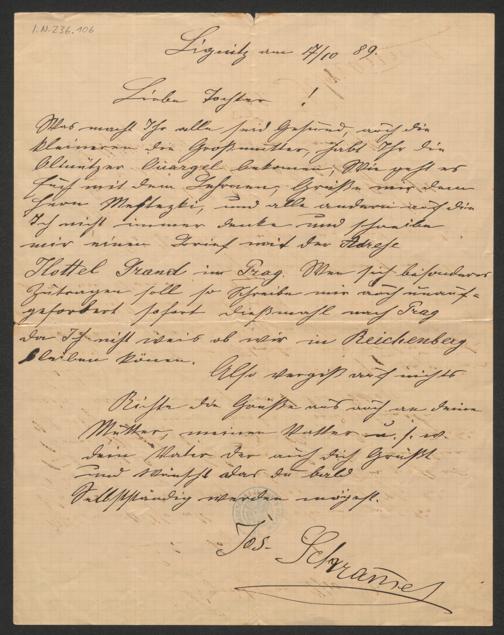 I.N. 236.106
Lignitz am 17/10 89.
Liebe Tochter !
Was macht Ihr alle seid Gesund, auch die
kleineren die Großmutter, habt Ihr die
Olmützer Quargel bekomen, Wie geht es
Euch mit dem Lehrnen, Grüße mir den
Herrn und alle andern auch die
Ich nicht immer denke und schreibe
mir einen Brief mit der Adrese
Hottel Grand in Prag. Wen sich besonderes
Zutragen soll so Schreibe mir auch unauf-
gefordert sofort dießmahl nach Prag
da Ich nicht weis ob wir in Reichenberg
bleiben könen.
Also vergeß auf nichts
Richte die Grüße aus auch an deine
Mutter, meinen Vatter u. s. w.
dein Vater der auch dich Grüßt
und Wünscht das du bald
Selbstständig werden mögest.
Jos. Schramel